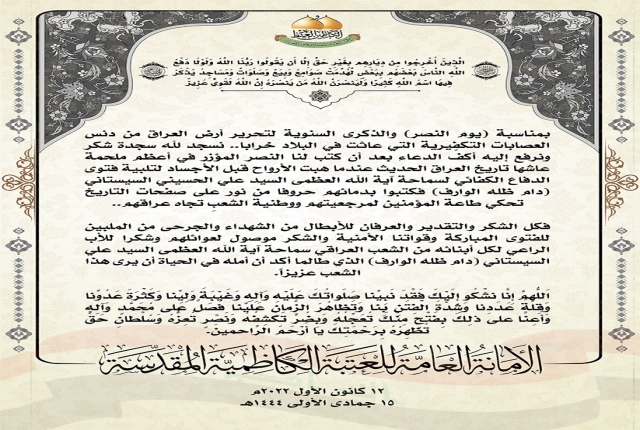 الَّذِينَ أُخْرِجُوا مِن دِيَارِهِم بِغَيْرِ حَقٍّ إِلَّا أَن يَقُولُوا رَبُّنَا اللَّهُ وَلَوْلَا دَفْعُ
اللَّهِ النَّاسَ بَعْضَهُم بِبَعْضٍ لَّهُدِّمَتْ صَوَامِعُ وَبِيَعٌ وَصَلَوَاتٌ وَمَسَاجِدُ يُذْكَرُ
فِيهَا اسْمُ اللَّهِ كَثِيرًا وَلَيَنصُرَنَّ اللَّهُ مَن يَنصُرُهُ إِنَّ اللَّهَ لَقَوِيٌّ عَزِيزٌ
بمناسبة (يوم النصر) والذكرى السنوية لتحرير أرض العراق من دنس
العصابات التكفيرية التي عاثت في البلاد خرابا.. نسجد لله سجدة شكر
ونرفع إليه أكف الدعاء بعد أن كتب لنا النصر المؤزر في أعظم ملحمة
عاشها تاريخ العراق الحديث عندما هبت الأرواح قبل الأجساد لتلبية فتوى
الدفاع الكفائي لسماحة آية الله العظمى السيد علي الحسيني السيستاني
(دام ظله الوارف) فكتبوا بدمائهم حروفا من نور على صفحات التاريخ
تحكي طاعة المؤمنين لمرجعيتهم ووطنية الشعب تجاه عراقهم..
فكل الشكر والتقدير والعرفان للأبطال من الشهداء والجرحى من الملبين
للفتوى المباركة وقواتنا الأمنية والشكر موصول لعوائلهم وشكرا للأب
الراعي لكل أبنائه من الشعب العراقي سماحة آية الله العظمى السيد علي
السيستاني (دام ظله الوارف) الذي طالما أكد أن أمله في الحياة أن يرى هذا
الشعب عزيزاً.
اللهُم إنّا نَشكُو إليْكَ فَقْدَ نَبيّنا صلواتُكَ عَلَيْهِ وَآلِهِ وَغَيْبَةَ وَليّنا وَكَثْرَةَ عَدُوّنا
وَقِلّةَ عَدَدِنا وَشِدةَ الفِتَنِ بِنا وَتَظاهُرَ الزَمانِ عَلَيْنا فَصَلّ عَلى مُحَمّدٍ وَآلِهِ
وَأعِنا عَلى ذلِكَ بِفَتْحٍ مِنْكَ تُعَجّلُهُ وَبِضُرٍّ تَكْشِفُهُ وَنَصْرٍ تُعِزّهُ وَسُلْطانِ حَقٍّ
تُظْهِرُهُ بِرَحْمَتِكَ يا أرْحَمَ الرّاحِمين.
الأمانة العامة للعتبة الكاظمية المقدسة
١٢ كانون الأول ٢٠٢٢م
١٥ جمادى الأولى ١٤٤٤هـ